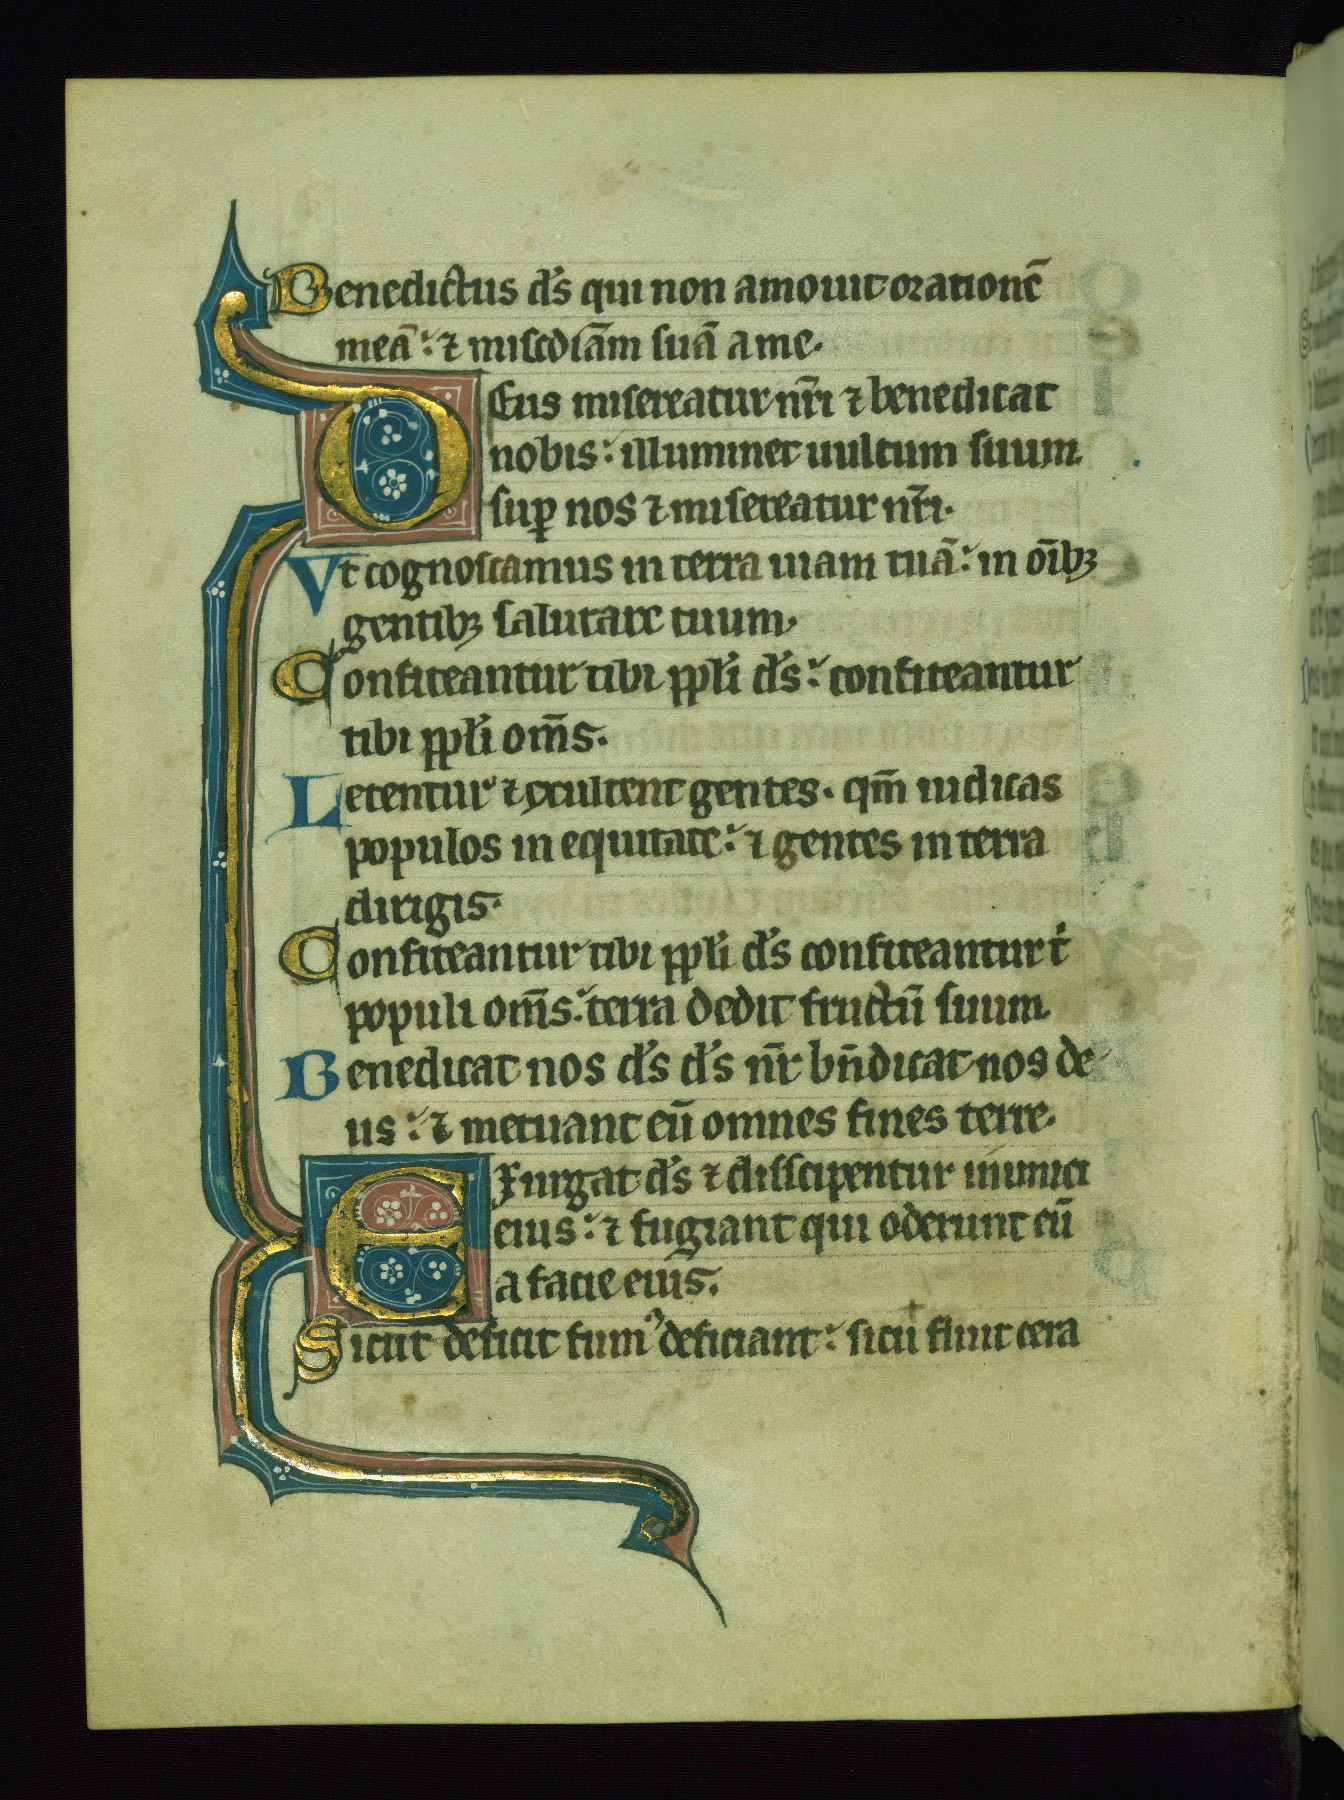 Benedictus ds̃ qui non amouit orationē
meā: ⁊ misc̃dıã̃m suā a me.
Deus misereatur nr̃i ⁊ benedicat
nobis: illuminet uultum suum
suꝑ nos ⁊ misereatur nr̃i.
Vt cognoscamus in terra uiam tuā: in oībꝫ
gentibꝫ salutare tuum.
Confiteantur tibi ppl̃i ds̃: confiteantur
tibi ppl̃i om̃s.
Letentur ⁊ exultent gentes. qm̃ iudicas
populos in equitate: ⁊ gentes in terra
dirigis.
Confiteantur tibi ppl̃i ds̃ confiteantur tⁱ
populi om̃s: terra dedit fructū suum.
Benedicat nos ds̃ ds̃ nr̃ bñdicat nos de
us: ⁊ metuant eū omnes fines terre.
Exurgat ds̃ ⁊ dissipentur inimici
eius: ⁊ fugiant qui oderunt eū
a facie eius.
Sicut deficit fumꝰ deficiant: sicū fluit cera